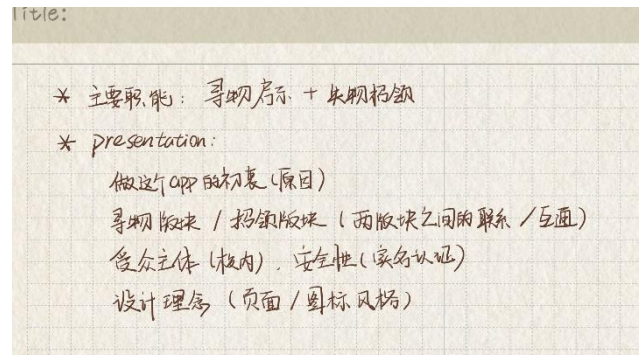 Title:
* 主要职能：寻物启示 + 失物招领
* presentation:
做这个app的初衷（原因）
寻物版块 / 招领版块（两版块之间的联系 / 互通）
受众主体（校内）、安全性（实名认证）
设计理念（页面 / 图标风格）